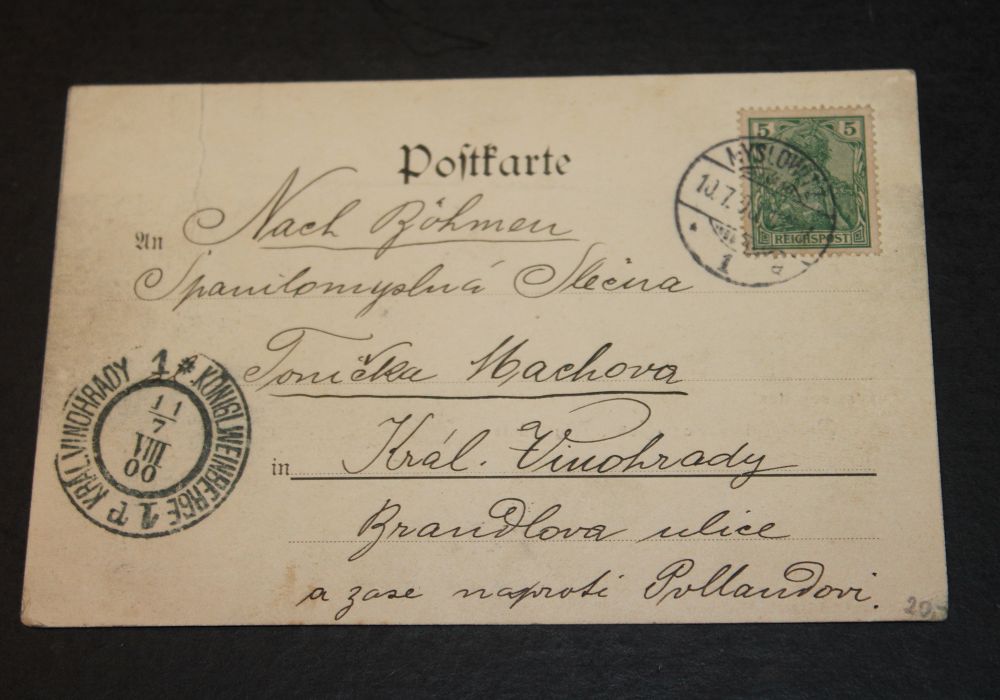 Postkarte
5 5
REICHSPOST
MYSLOWITZ
10.7.
1
An Nach Böhmen
Spanilomyslná Slečna
Tonička Machova
in Král. Vinohrady
Brandlova ulice
a zase naproti Pollandovi.
KRÁL. VINOHRADY 1 * KÖNIGL. WEINBERGE 1
11
7
VIII
00
20,-